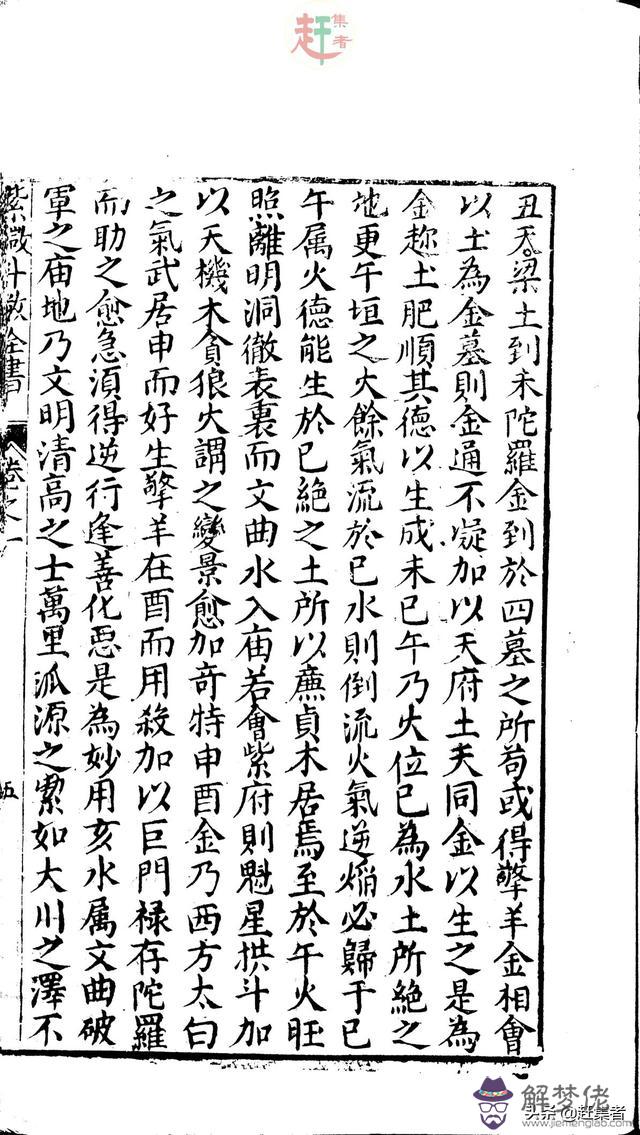 赶集者
丑天梁土到未陀羅金到於四墓之所苟或得擎羊金相會
以土為金墓則金通不凝加以天府土天同金以生之是為
金趂土肥順其德以生成未巳午乃火位巳為水土所絶之
地更午垣之火餘氣流於巳水則倒流火氣逆焰必歸于巳
午属火德能生於巳絶之土所以廉貞木居焉至於午火旺
照離明洞徹表裏而文曲水入庙若會紫府則魁星拱斗加
以天機木貪狼火謂之變景愈加奇特申酉金乃西方太白
之氣武居申而好生擎羊在酉而用殺加以巨門禄存陀羅
而助之愈急須得逆行逢善化悪是為妙用亥水属文曲破
軍之庙地乃文明清高之士萬里泒源之㓗如大川之澤不
紫微斗数全書 卷之一 五
解梦佬
www.jiemenglao8.com
头条@赶集者